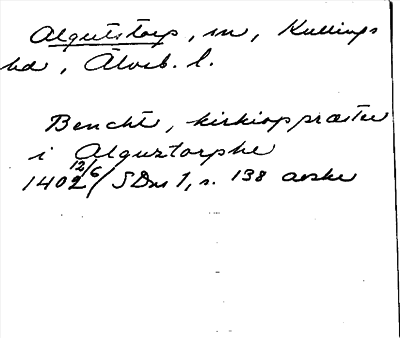 Algutstorp, sn, Kullings
hd, Älvsb. l.
Bencht, kirkiopræster
i Algutztorphe
1402 12/6 SDns 1, s. 138 avskr